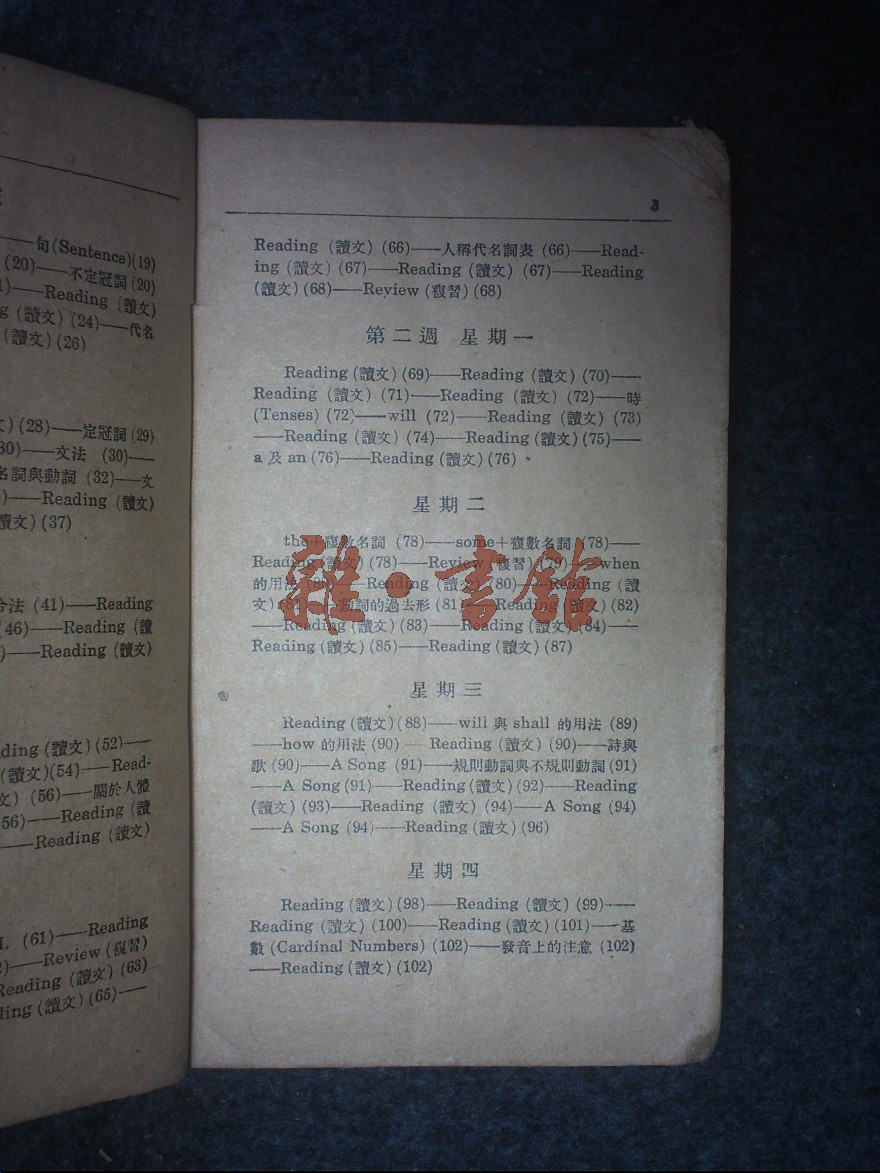 句(Sentence)(19)
(20)——不定冠詞(20)
——Reading (讀文)
(讀文)(24)——代名
(讀文)(26)
(28)——定冠詞(29)
——文法 (30)——
名詞與動詞 (32)——文
——Reading (讀文)
(37)
(41)——Reading
(46)——Reading (讀
——Reading (讀文)
(讀文)(52)——
(讀文)(54)——Read-
(56)——關於人體
——Reading (讀
——Reading (讀文)
(61)——Reading
——Review (複習)
Reading (讀文)(63)
(讀文)(65)——
3
Reading (讀文) (66)——人稱代名詞表 (66)——Read-
ing (讀文) (67)——Reading (讀文) (67)——Reading
(讀文) (68)——Review (複習) (68)
第二週 星期一
Reading (讀文) (69)——Reading (讀文) (70)——
Reading (讀文) (71)——Reading (讀文) (72)——時
(Tenses) (72)——will (72)——Reading (讀文) (73)
——Reading (讀文) (74)——Reading (讀文) (75)——
a 及 an (76)——Reading (讀文) (76)
星期二
the+複數名詞 (78)——some+複數名詞 (78)——
Reading (讀文) (78)——Review (複習) (79)——when
的用法 (80)——Reading (讀文) (80)——Reading (讀
文) (81)——動詞的過去形 (81)——Reading (讀文) (82)
——Reading (讀文) (83)——Reading (讀文) (84)——
Reading (讀文) (85)——Reading (讀文) (87)
雜·書館
星期三
Reading (讀文) (88)——will 與 shall 的用法 (89)
——how 的用法 (90)——Reading (讀文) (90)——詩與
歌 (90)——A Song (91)——規則動詞與不規則動詞 (91)
——A Song (91)——Reading (讀文) (92)——Reading
(讀文) (93)——Reading (讀文) (94)——A Song (94)
——A Song (94)——Reading (讀文) (96)
星期四
Reading (讀文) (98)——Reading (讀文) (99)——
Reading (讀文) (100)——Reading (讀文) (101)——基
數 (Cardinal Numbers) (102)——發音上的注意 (102)
——Reading (讀文) (102)